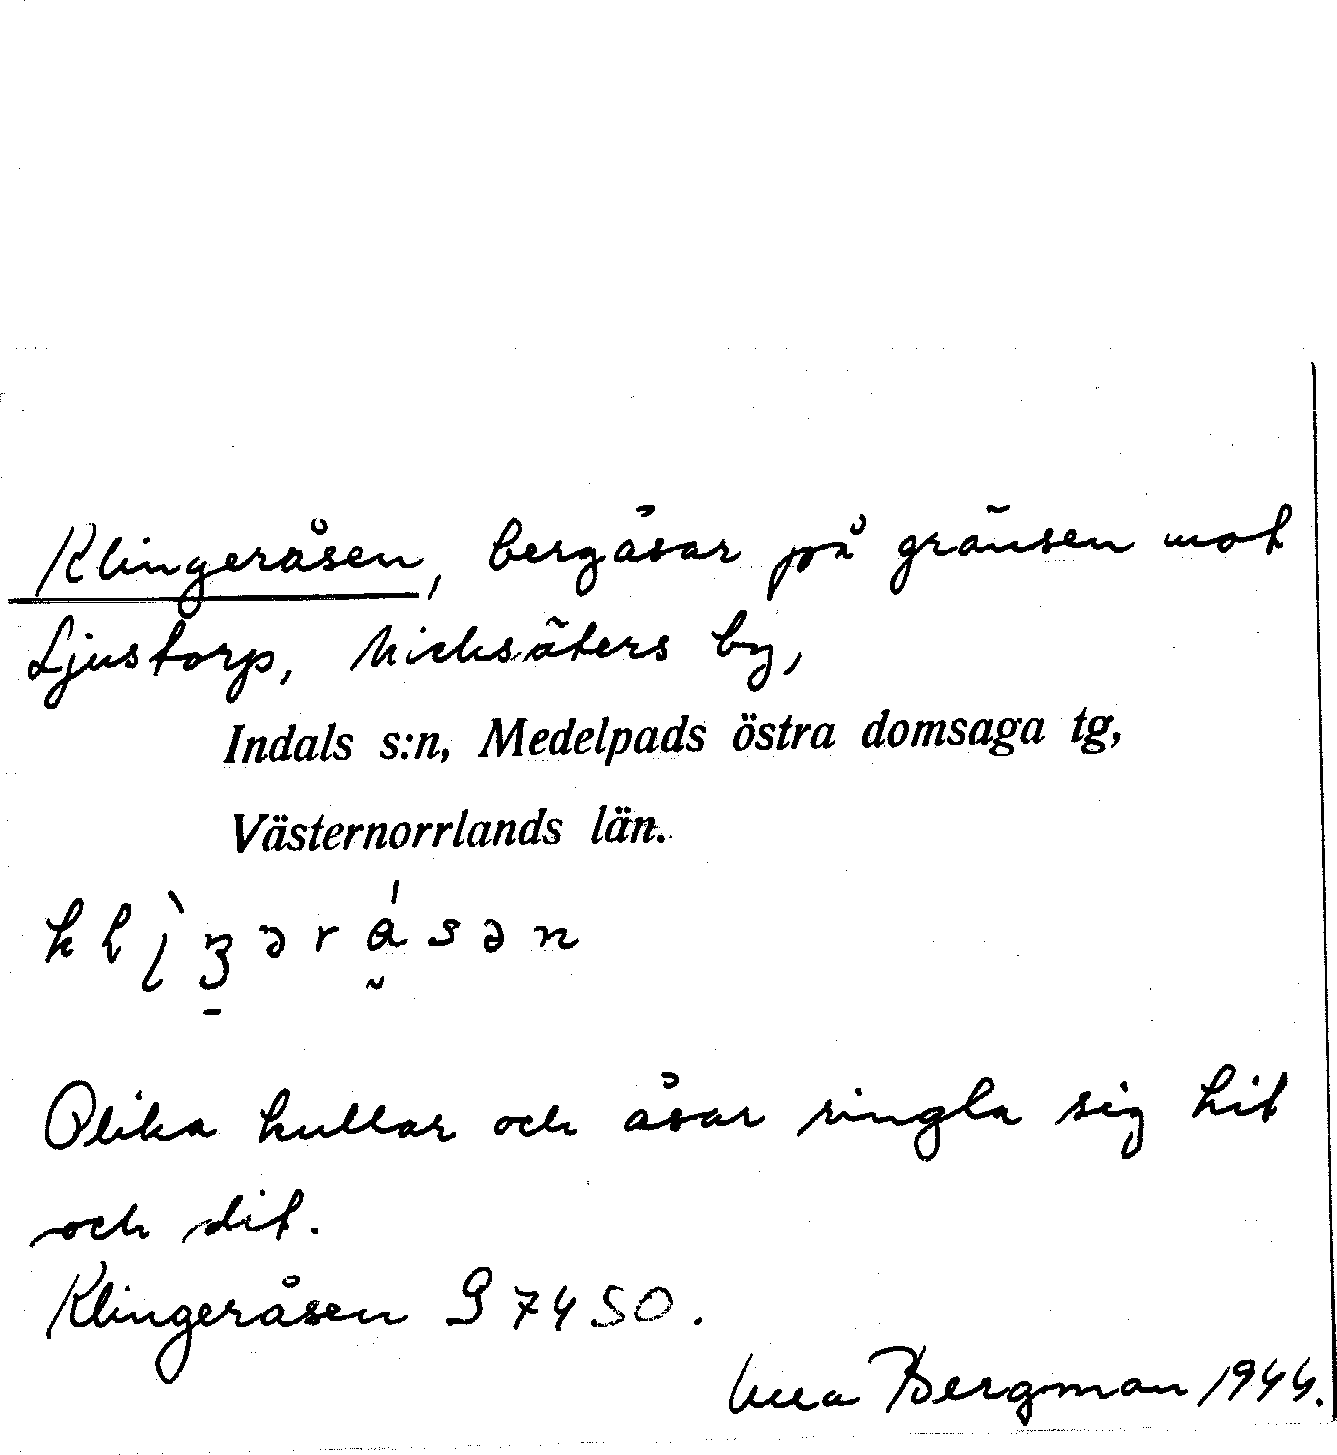 Klingeråsen, bergåsar på gränsen mot
Ljustorp, Nicksäters by,
Indals s:n, Medelpads östra domsaga tg,
Västernorrlands län.
Olika kullar och åsar ringla sig hit
och dit.
Klingeråsen 97450.
Bergman 1944.